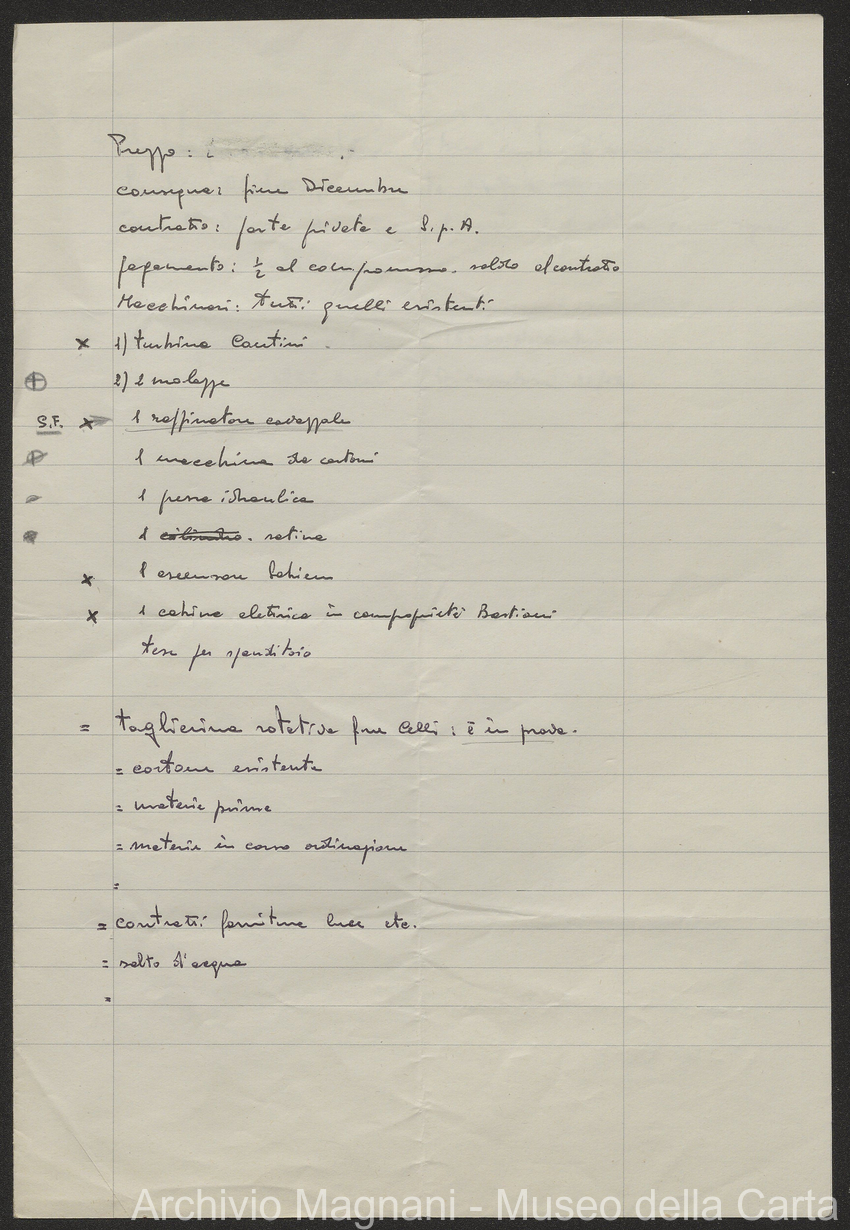 Prezzo: £
consegna: fine Dicembre
contratto: parte privata e S.p.A.
pagamento: ½ al compromesso. saldo al contratto
Macchinari: tutti quelli esistenti
x 1) turbina Cantini
2) 2 molazze
S.F. x 1 raffinatore cavazzale
1 macchina da cartoni
1 pressa idraulica
1 cilindro. satina
x 1 ascensore Sabiem
x 1 cabina elettrica in comproprietà Bastiani
tese per spanditoio
= taglierina rotativa fine Celli: è in prova.
= cartone esistente
= materie prime
= materie in corso ordinazione
=
= contratti fornitura luce etc.
= salto d'acqua
=
Archivio Magnani - Museo della Carta